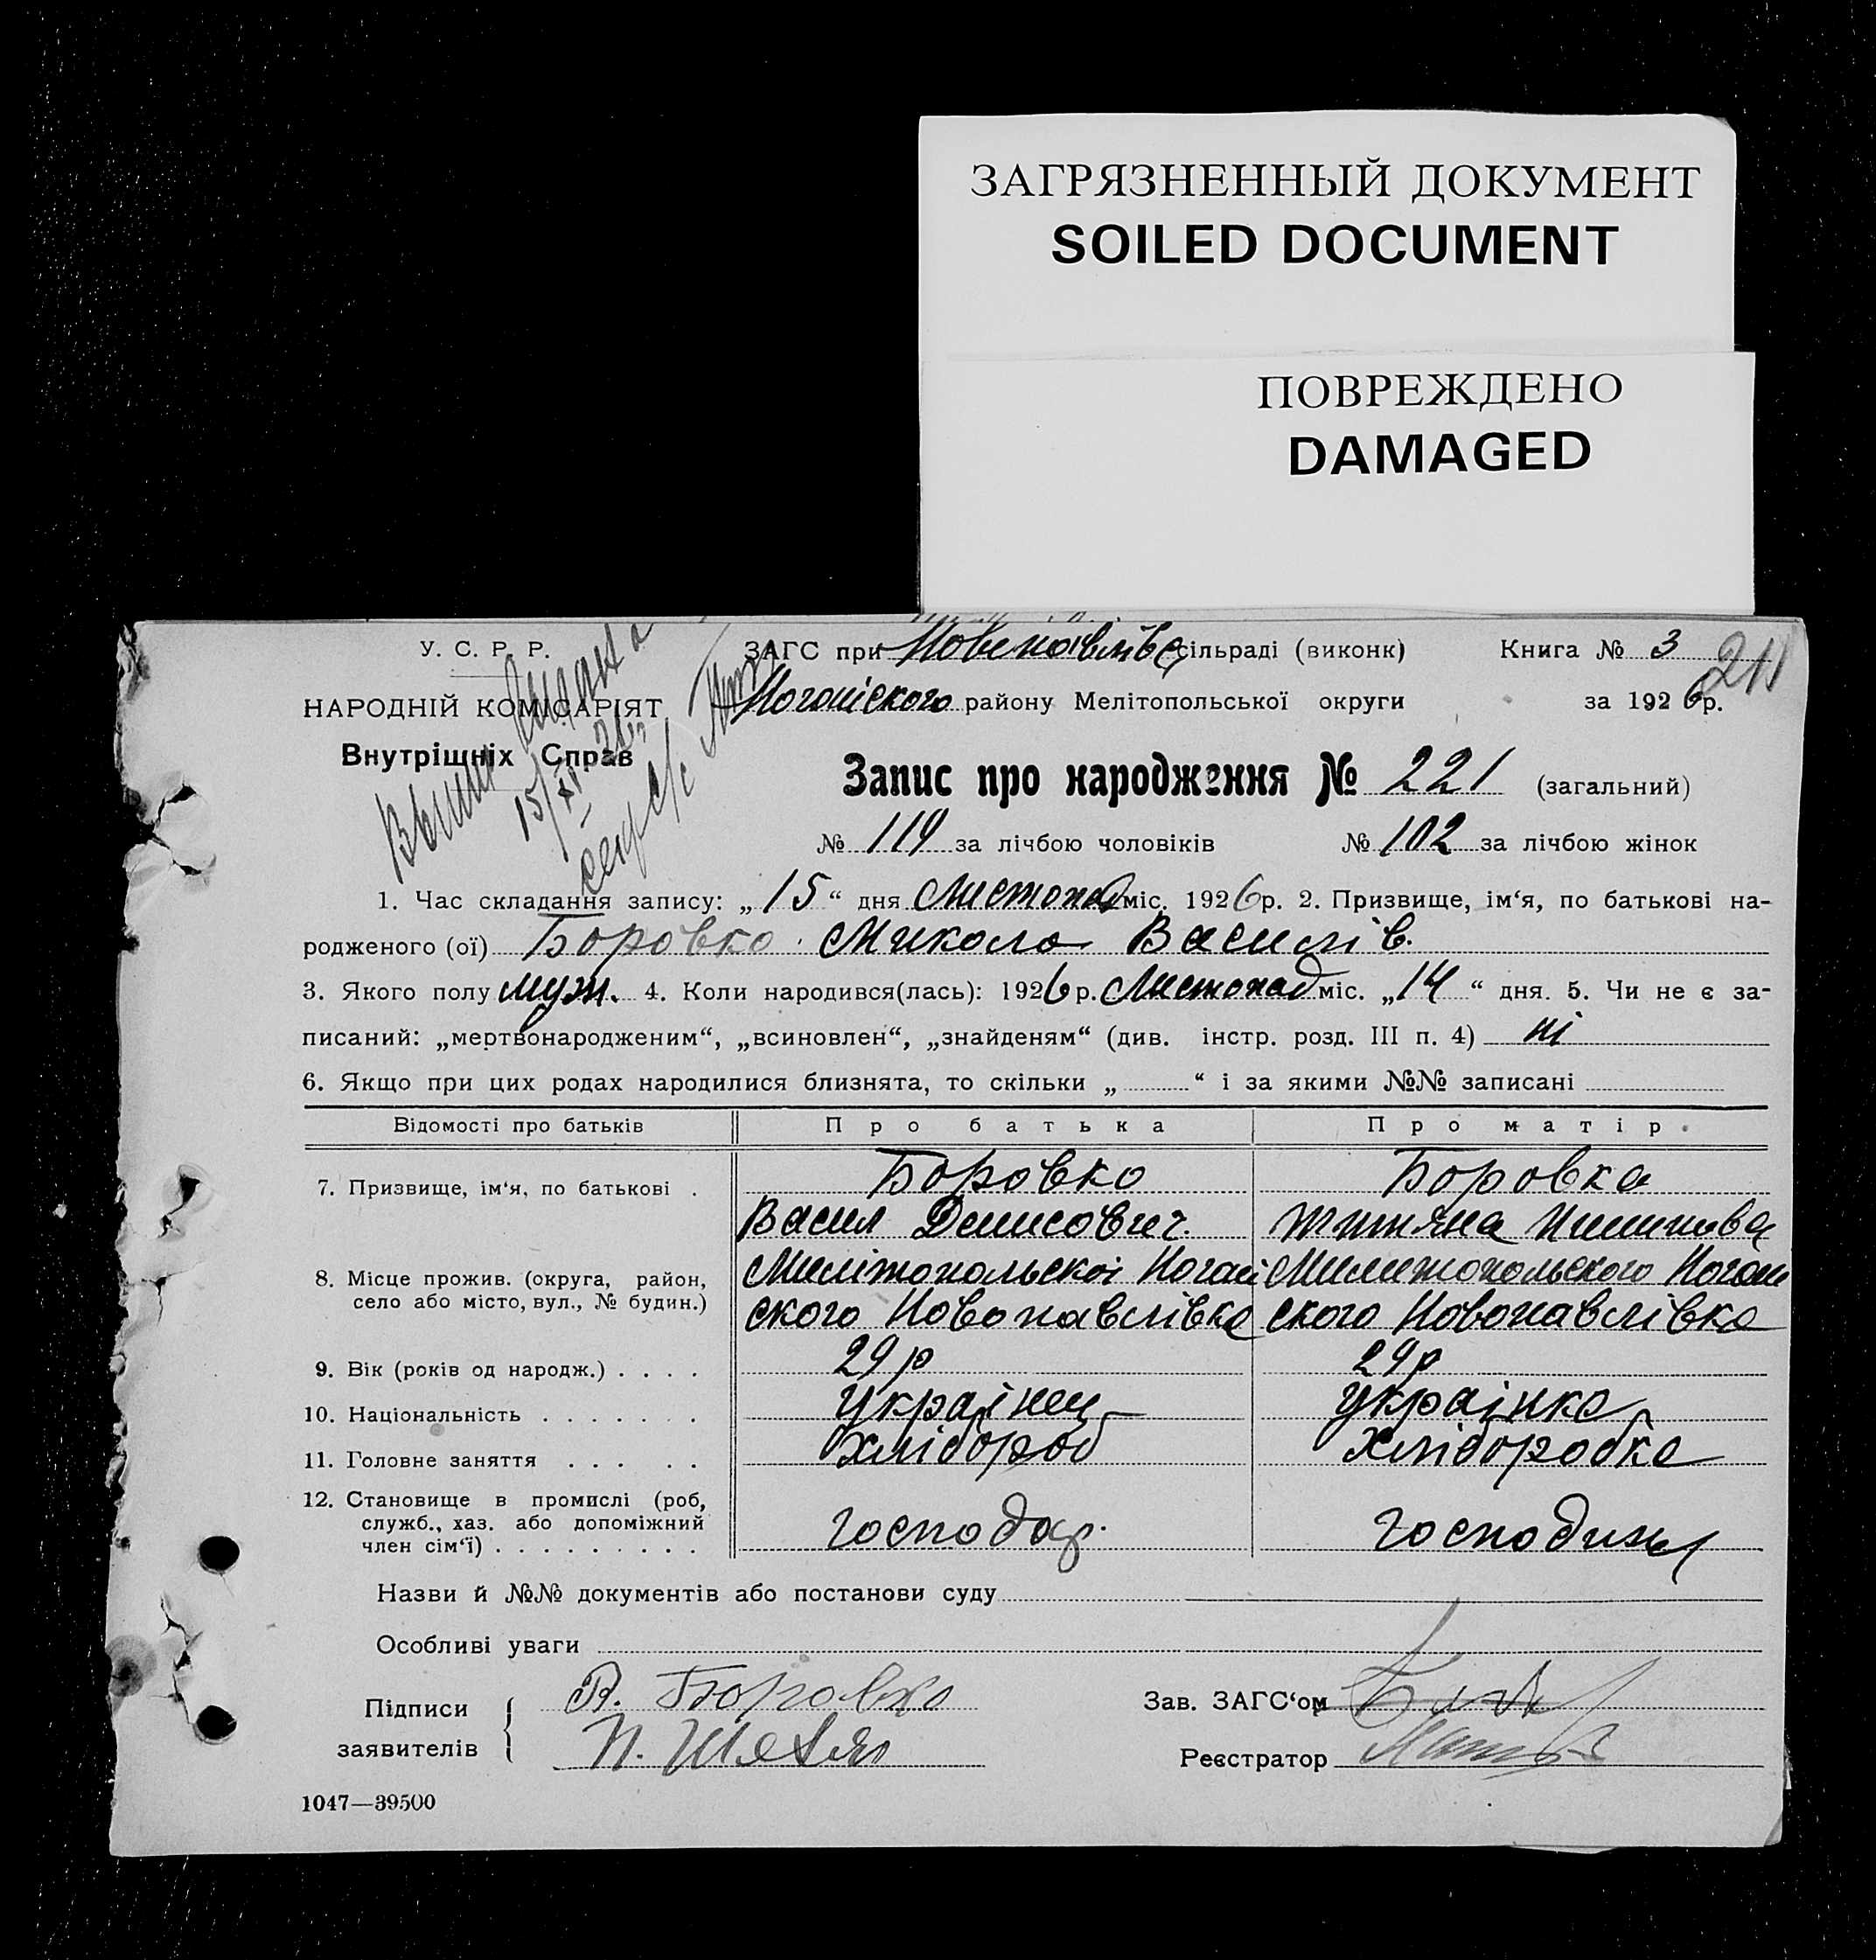 ЗАГРЯЗНЕННЫЙ ДОКУМЕНТ
SOILED DOCUMENT
ПОВРЕЖДЕНО
DAMAGED
У. С. Р. Р.
НАРОДНІЙ КОМІСАРІЯТ
Внутрішніх Справ
15/XI 26
ЗАГС при сільраді (виконк) Книга № 3
211
Ногайского району Мелітопольської округи за 1926 р.
Запис про народження № 221 (загальний)
№ 119 за лічбою чоловіків № 102 за лічбою жінок
1. Час складання запису: „15“ дня Листопад міс. 1926 р. 2. Призвище, ім‘я, по батькові на-
родженого (ої) Боровко Микола Василів.
3. Якого полу муж. 4. Коли народився(лась): 1926 р. Листопад міс. „14“ дня. 5. Чи не є за-
писаний: „мертвонародженим“, „всиновлен“, „знайденям“ (див. інстр. розд. III п. 4) ні
6. Якщо при цих родах народилися близнята, то скільки „ “ і за якими №№ записані
Відомості про батьків Про батька Про матір.
7. Призвище, ім‘я, по батькові . Боровко Боровка
Васил Денисович.
8. Місце прожив. (округа, район, село або місто, вул., № будин.) Милітопольскоі Ногай Милитопольского Ногай
ского Новопавлівка ского Новопавлівка
9. Вік (років од народж.) . . . . 29 р 29 р
10. Національність . . . . . . . українец українка
11. Головне заняття . . . . . хлібороб хліборобка
12. Становище в промислі (роб,
служб., хаз. або допоміжний
член сім‘ї) . . . . . . . . . господар. господиня
Назви й №№ документів або постанови суду
Особливі уваги
Підписи
заявителів
В. Боровко
Зав. ЗАГС‘ом
Реєстратор
1047—39500